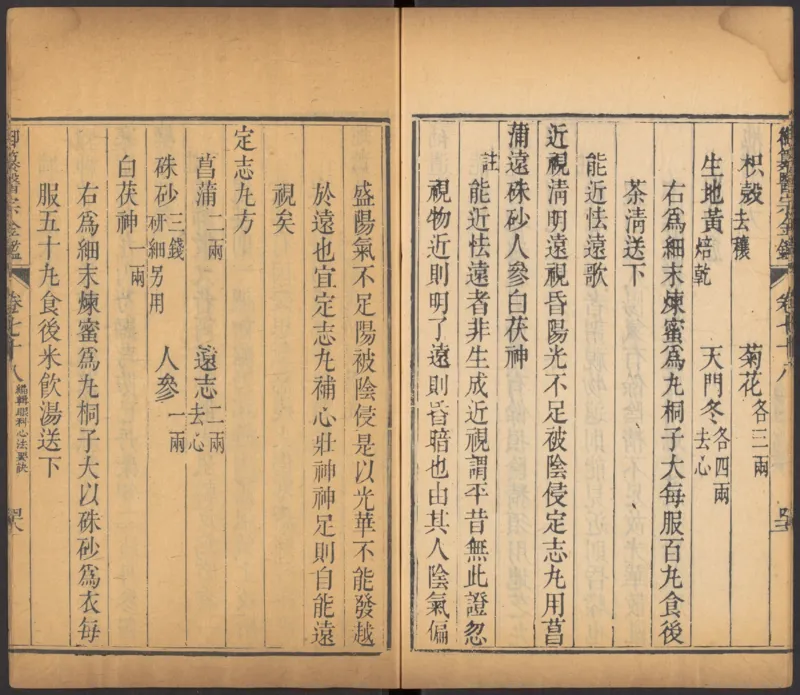 枳殼去穰 菊花各三兩
生地黃焙乾 天門冬去心各四兩
右爲細末煉蜜爲九桐子大每服百九食後
茶清送下
能近怯遠歌
近視清明遠視昏陽光不足被陰侵定志九用菖
蒲遠硃砂人參白茯神
註
能近怯遠者非生成近視謂平昔無此證忽
視物近則明了遠則昏暗也由其人陰氣偏
盛陽氣不足陽被陰侵是以光華不能發越
於遠也宜定志九補心壯神神足則自能遠
視矣
定志九方
菖蒲二兩 遠志二兩去心
硃砂三錢研細另用 人參一兩
白茯神一兩
右爲細末煉蜜爲九桐子大以硃砂爲衣每
服五十九食後米飲湯送下
御纂醫宗金鑑
卷七十八
編輯眼科心法要訣